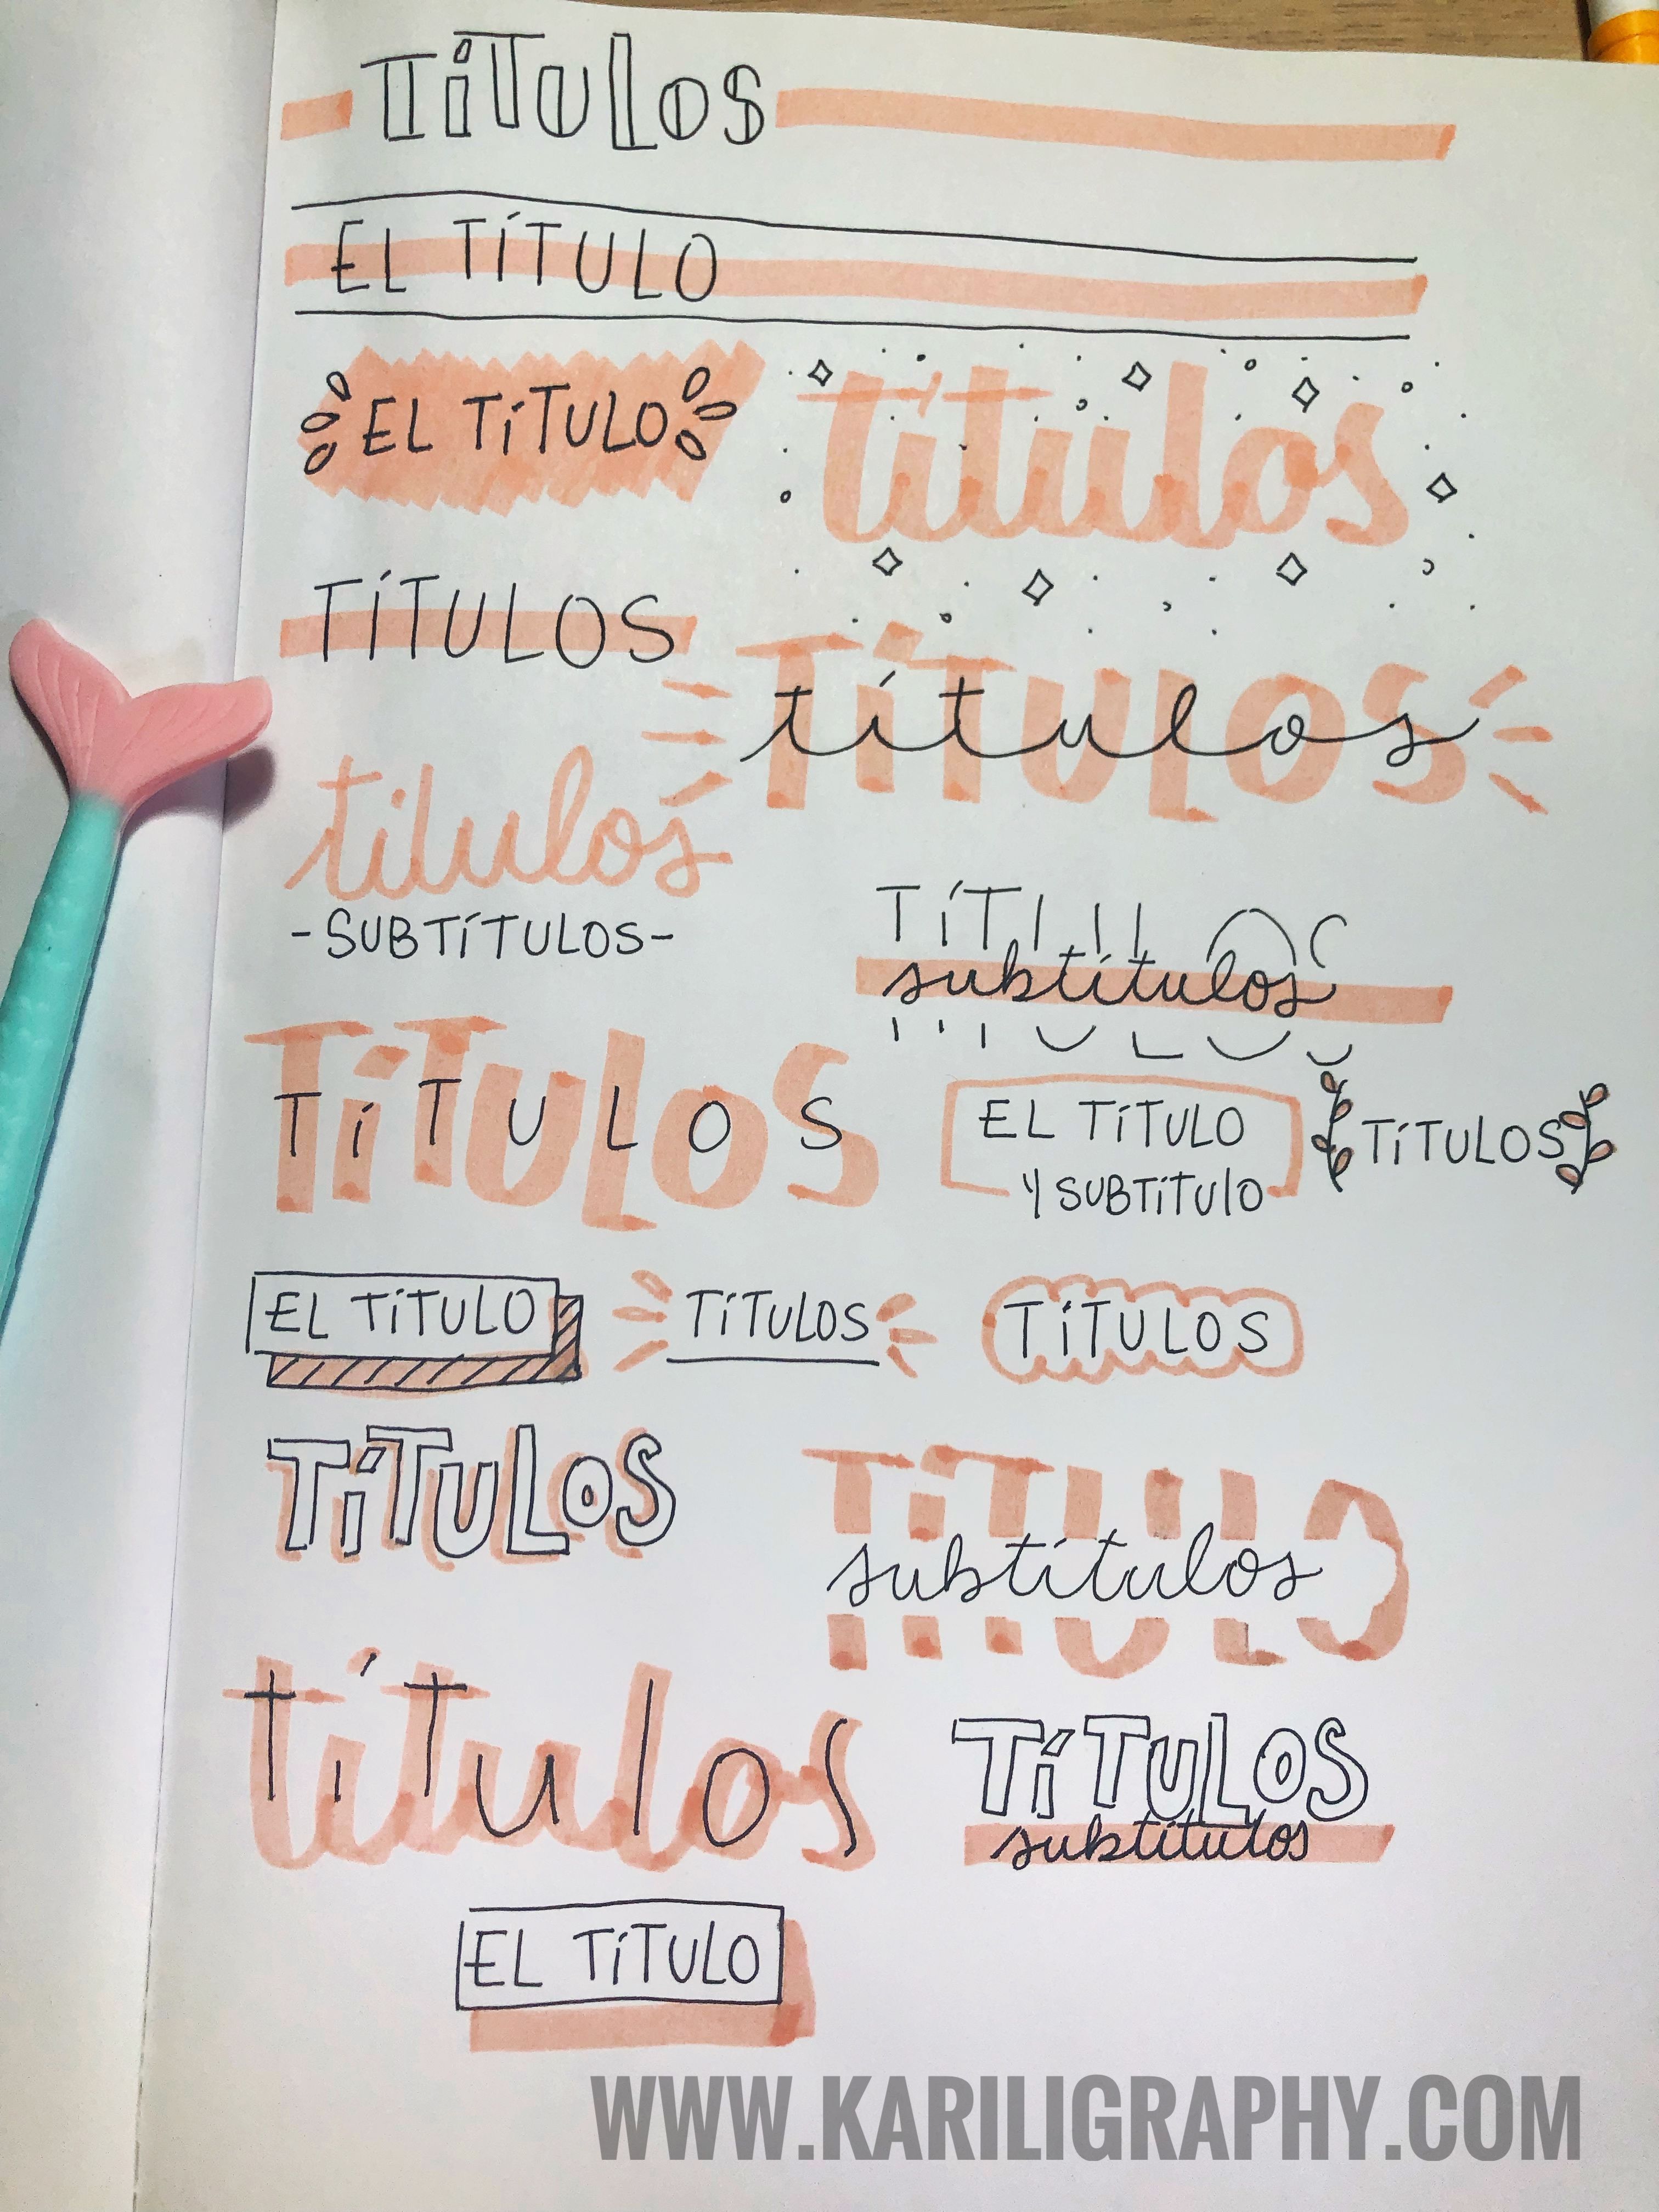 TíTULOS
EL TÍTULO
EL TíTULO
títulos
TÍTULOS
TíTULOS
títulos
títulos
-SUBTÍTULOS-
TÍTULOS
subtítulos
TíTULOS
TíTULOS
EL TíTULO
Y SUBTíTULO
TíTULOS
EL TíTULO
TíTULOS
TíTULOS
TíTULOS
TíTULO
subtítulos
títulos
títulos
TíTULOS
subtítulos
EL TíTULO
WWW.KARILIGRAPHY.COM